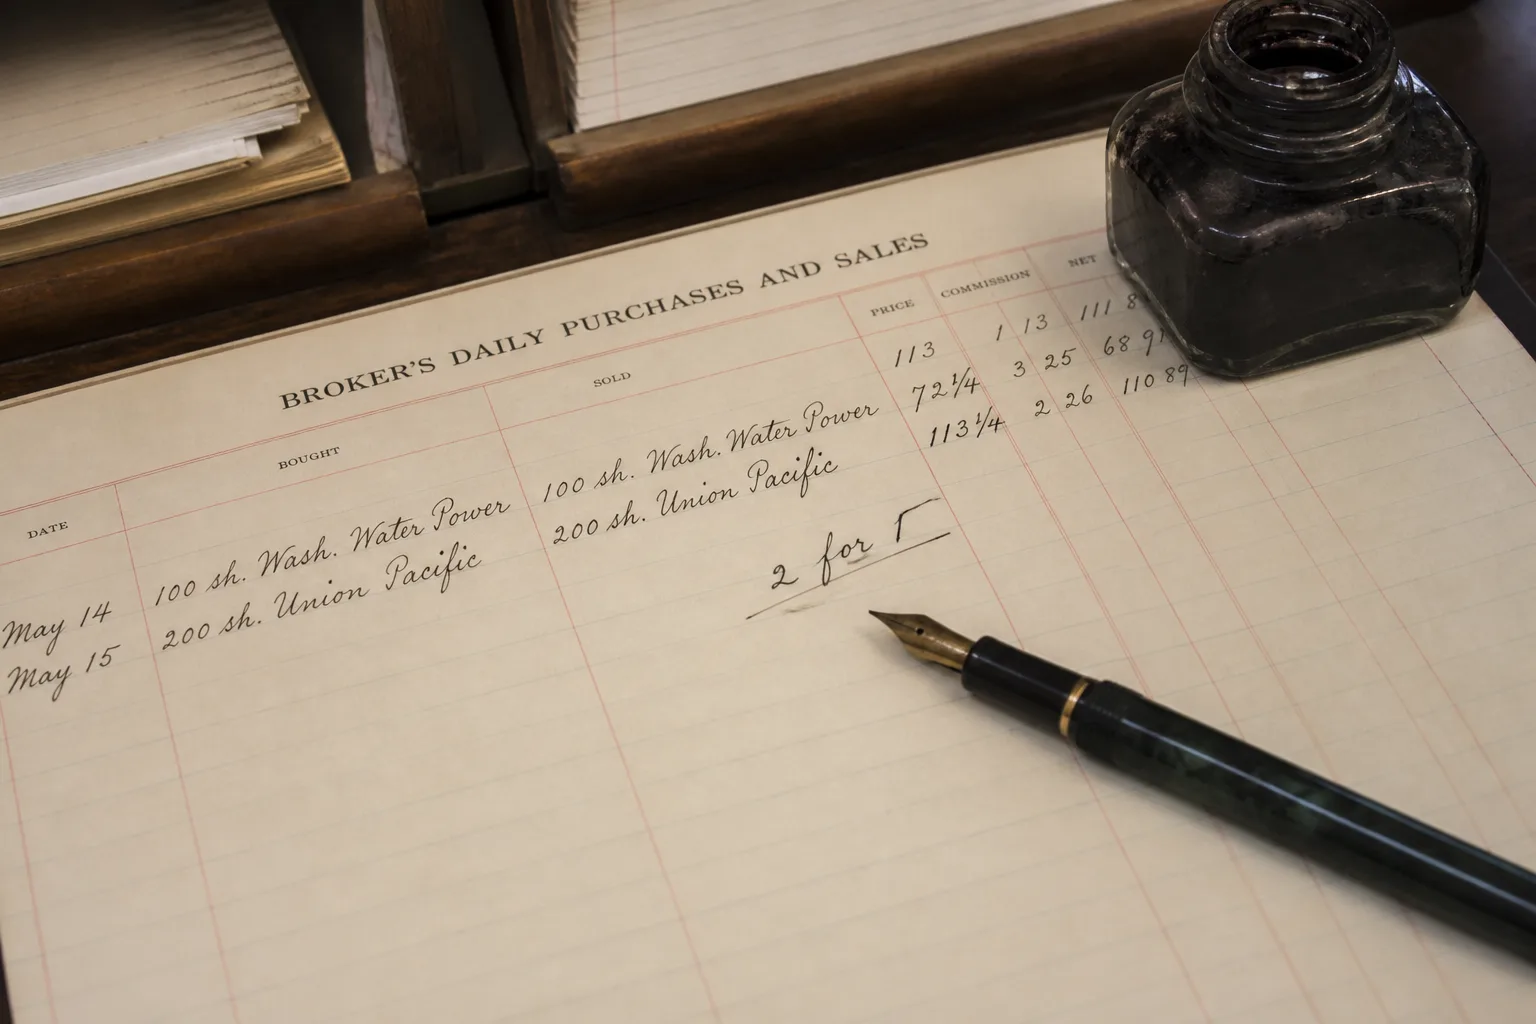 BROKER'S DAILY PURCHASES AND SALES
DATE BOUGHT SOLD PRICE COMMISSION NET
113 1 13 111
May 14 100 sh. Wash. Water Power 100 sh. Wash. Water Power 72 1/4 3 25 68
May 15 200 sh. Union Pacific 200 sh. Union Pacific 113 1/4 2 26 110 89
2 for